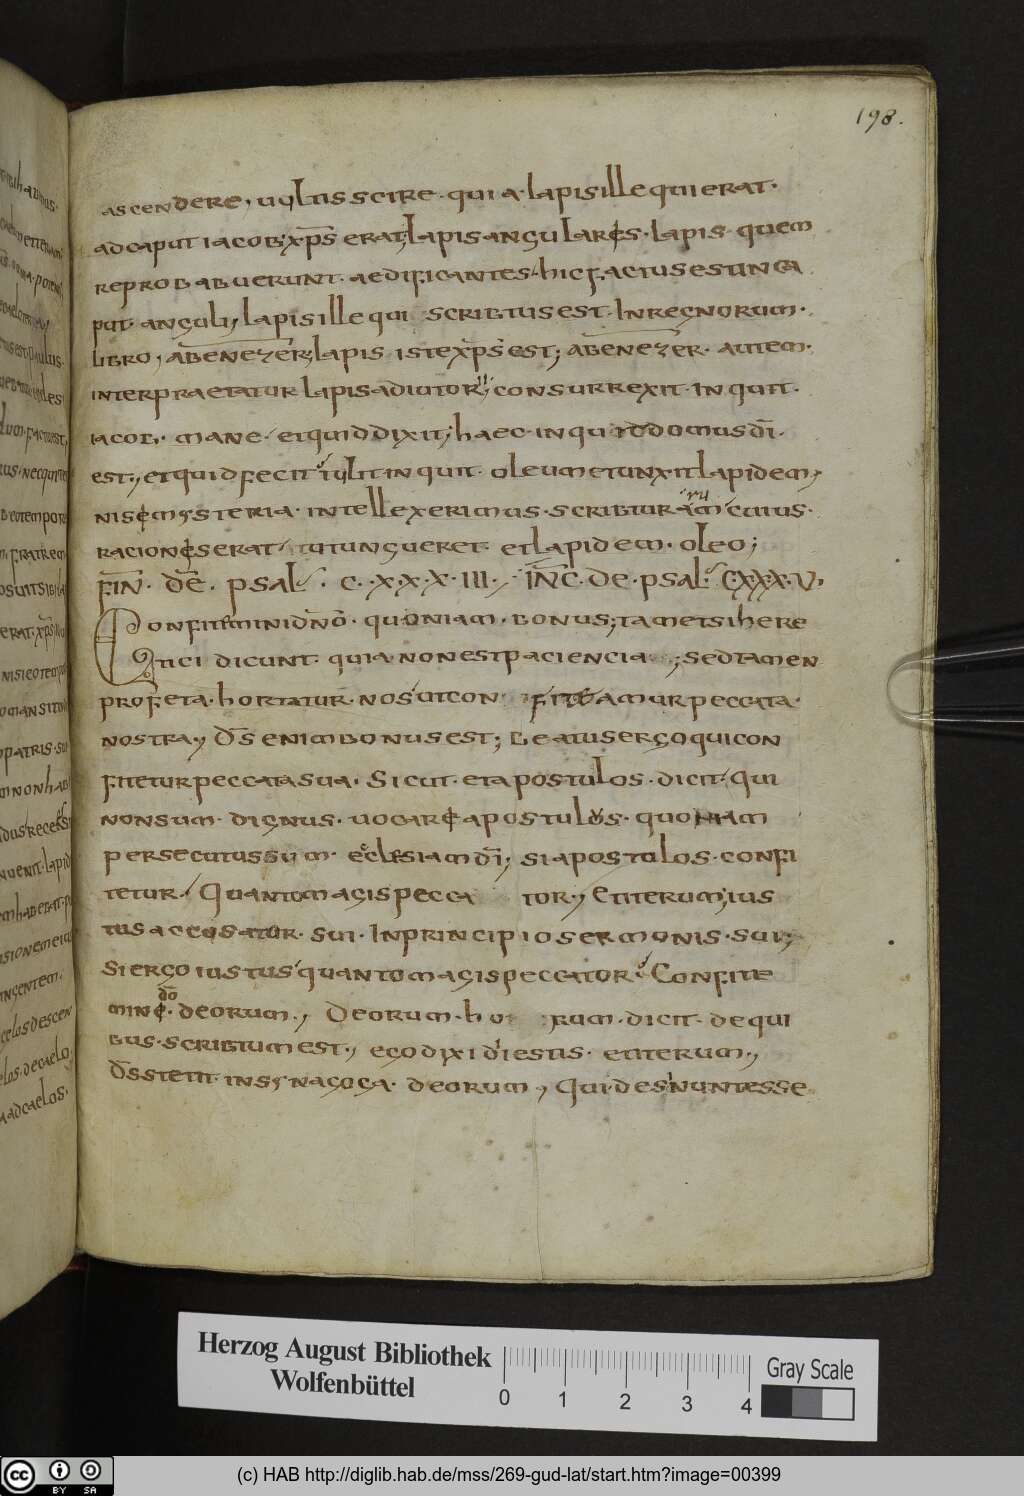 198.
ascendere, uultis scire · qui a · lapis ille qui erat ·
ad caput iacob; xp̄s erat; lapis angularęs · lapis · quem
reprobabuerunt · aedificantes · hic factus est in ca
put · anguli, lapis ille qui scribtus est · In regnorum ·
libro, abenezer; lapis iste xp̄s est; abenezer · autem ·
interpraetatur lapis adiutorii; consurrexit · inquit ·
iacob, · mane · et quid dixit; haec · inqu domus dī ·
est; et quid fecit tulit inquit · oleum et unxit lapidem,
nisę mysteria · intellexerimus · scribturarum cuius ·
racionęs erat · ut ungueret · et lapidem · oleo;
FIN̄ · DĒ · psal · C · X · X · X · III · IN̄C · De · psal · C · X · X · X · V ·
Confitemini dn̄o · quoniam · bonus; tametsi here
tici dicunt · quia non est paciencia ; sed tamen
profeta · hortatur · nos ut con fiteamur peccata ·
nostra, D̄s enim bonus est; Beatus ergo qui con
fitetur peccata sua · Sicut · et apostulos · dicit · qui
non sum · dignus · uocarę apostulos · quoniam
persecutus sum · eclesiam dī; si apostulos · confi
tetur · Quanto magis pecca tor, Et iterum; ius
tus accusatur · sui · In principio sermonis · sui;
Si ergo iustus quanto magis peccator Confite
minę dō · deorum, Deorum · ho rum · dicit · de qui
bus · scribtum est, ego dixi dī estis · et iterum,
D̄s stetit · in synagoga · deorum, Qui des nunt esse
Herzog August Bibliothek
Wolfenbüttel
0 1 2 3 4
Gray Scale
cc BY SA
(c) HAB http://diglib.hab.de/mss/269-gud-lat/start.htm?image=00399